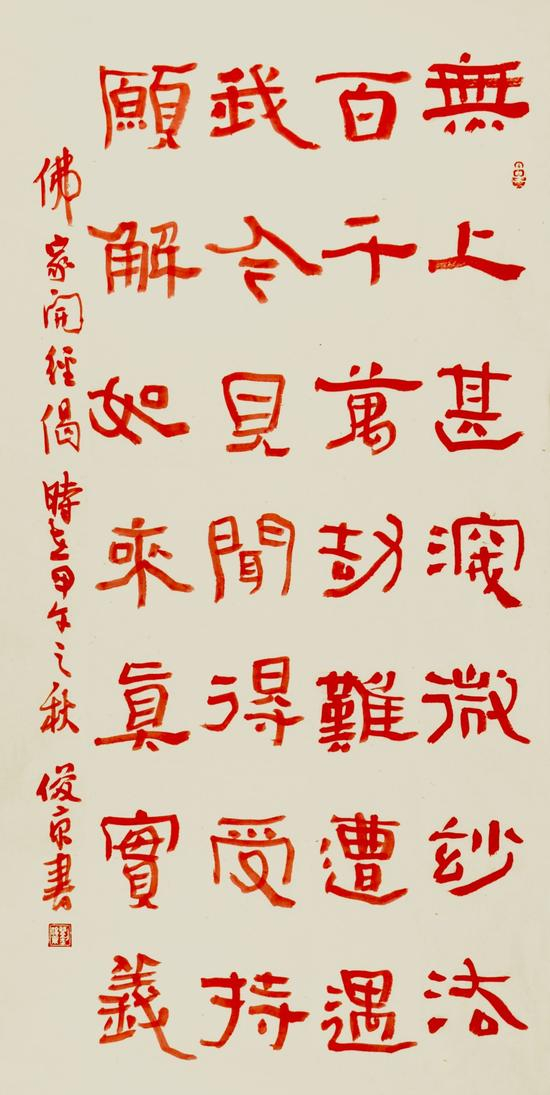 無上甚深微妙法
百千萬劫難遭遇
我今見聞得受持
願解如來真實義
佛家開經偈 時在甲午之秋 俊京書